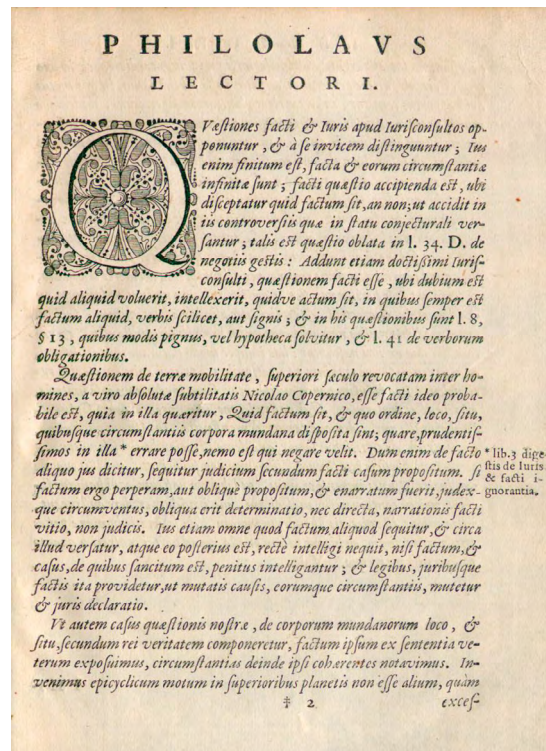 PHILOLAVS
LECTORI.
QVæſtiones facti & Iuris apud Iuriſconſultos op-
ponuntur, & à ſe invicem diſtinguuntur; Ius
enim finitum eſt, facta & eorum circumſtantiæ
infinitæ ſunt; facti quæſtio accipienda eſt, ubi
diſceptatur quid factum ſit, an non; ut accidit in
iis controverſiis quæ in ſtatu conjecturali ver-
ſantur; talis eſt quæſtio oblata in l. 34. D. de
negotiis geſtis: Addunt etiam doctiſſimi Iuriſ-
conſulti, quæſtionem facti eſſe, ubi dubium eſt
quid aliquid voluerit, intellexerit, quidve actum ſit, in quibus ſemper eſt
factum aliquid, verbis ſcilicet, aut ſignis; & in his quæſtionibus ſunt l. 8,
§ 13, quibus modis pignus, vel hypotheca ſolvitur, & l. 41 de verborum
obligationibus.
Quæſtionem de terræ mobilitate, ſuperiori ſæculo revocatam inter ho-
mines, a viro abſolutæ ſubtilitatis Nicolao Copernico, eſſe facti ideo proba-
bile eſt, quia in illa quæritur, Quid factum ſit, & quo ordine, loco, ſitu,
quibuſque circumſtantiis corpora mundana diſpoſita ſint; quare, prudentiſ-
ſimos in illa * errare poſſe, nemo eſt qui negare velit. Dum enim de facto
aliquo jus dicitur, ſequitur judicium ſecundum facti caſum propoſitum. ſi
factum ergo perperam, aut obliquè propoſitum, & enarratum fuerit, judex-
que circumventus, obliqua erit determinatio, nec directa, narrationis facti
vitio, non judicis. Ius etiam omne quod factum aliquod ſequitur, & circa
illud verſatur, atque eo poſterius eſt, rectè intelligi nequit, niſi factum, &
caſus, de quibus ſancitum eſt, penitus intelligantur; & legibus, juribuſque
factis ita providetur, ut mutatis cauſis, eorumque circumſtantiis, mutetur
& juris declaratio.
Vt autem caſus quæſtionis noſtræ, de corporum mundanorum loco, &
ſitu, ſecundum rei veritatem componeretur, factum ipſum ex ſententia ve-
terum expoſuimus, circumſtantias deinde ipſi cohærentes notavimus. In-
venimus epicyclicum motum in ſuperioribus planetis non eſſe alium, quàm
‡ 2
exceſ-
* lib.3 dige
ſtis de Iuris
& facti i-
gnorantia.